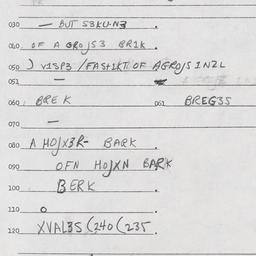 030 — BUT S3KU·N3
040 OF A GROJS3 BR1K
050 ) V1SP3 /FAS+1KT OF AGROJS 1NZL
051 —
060 BRE K 061 BREG3S
070 —
080 A HOJX3R- BARK
090 OFN HOJXN BARK
100 BERK
110 O
120 XVAL3S (240 (235